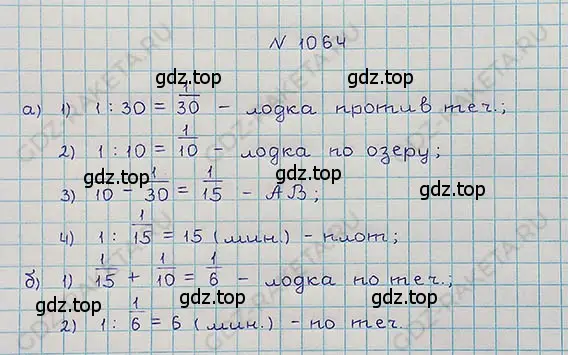 N 1064
gdz.top gdz.top
а) 1) 1 : 30 = 1/30 - лодка против теч.;
2) 1 : 10 = 1/10 - лодка по озеру;
gdz.top gdz.top
3) 1/10 - 1/30 = 1/15 - АВ;
4) 1 : 1/15 = 15 (мин.) - плот;
gdz.top gdz.top
б) 1) 1/15 + 1/10 = 1/6 - лодка по теч.;
gdz.top gdz.top
2) 1 : 1/6 = 6 (мин.) - по теч.
GDZ-RAKETA.RU